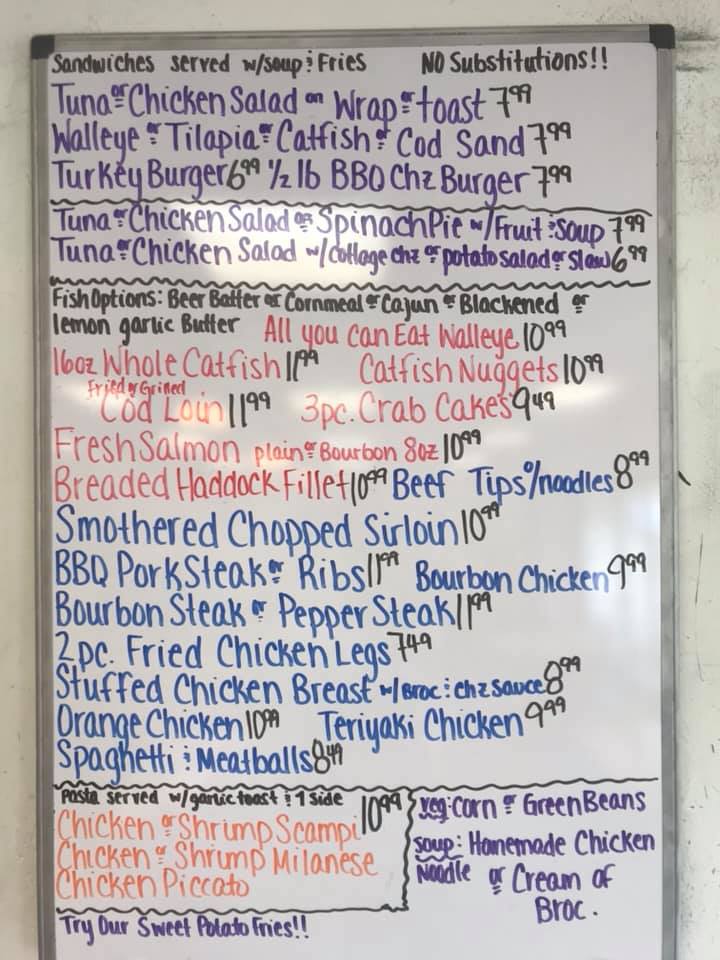 Sandwiches served w/soup & Fries NO Substitutions!!
Tuna or Chicken Salad on Wrap or toast 7.99
Walleye or Tilapia or Catfish or Cod Sand 7.99
Turkey Burger 6.99 1/2 lb BBQ Chz Burger 7.99
Tuna or Chicken Salad or Spinach Pie w/Fruit & Soup 7.99
Tuna or Chicken Salad w/cottage chz or potato salad or Slaw 6.99
Fish Options: Beer Batter or Cornmeal or Cajun or Blackened or
lemon garlic Butter All you can Eat Walleye 10.99
16oz Whole Catfish 11.99 Catfish Nuggets 10.99
Fried or Grilled
Cod Loin 11.99 3pc. Crab Cakes 9.49
Fresh Salmon plain or Bourbon 8oz 10.99
Breaded Haddock Fillet 10.99 Beef Tips o/noodles 8.99
Smothered Chopped Sirloin 10.99
BBQ Pork Steak or Ribs 11.99 Bourbon Chicken 9.99
Bourbon Steak or Pepper Steak 11.99
2pc. Fried Chicken Legs 7.49
Stuffed Chicken Breast w/Broc & chz sauce 8.99
Orange Chicken 10.99 Teriyaki Chicken 9.99
Spaghetti & Meatballs 8.49
Pasta served w/garlic toast & 1 side 10.99
Chicken or Shrimp Scampi
Chicken or Shrimp Milanese
Chicken Piccato
veg: corn or Green Beans
soup: Homemade Chicken
Noodle or Cream of
Broc.
Try Our Sweet Potato Fries!!